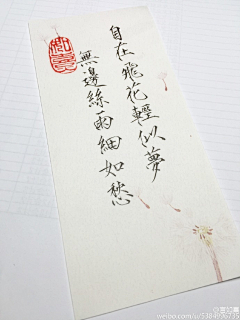 自在飛花輕似夢
無邊絲雨細如愁